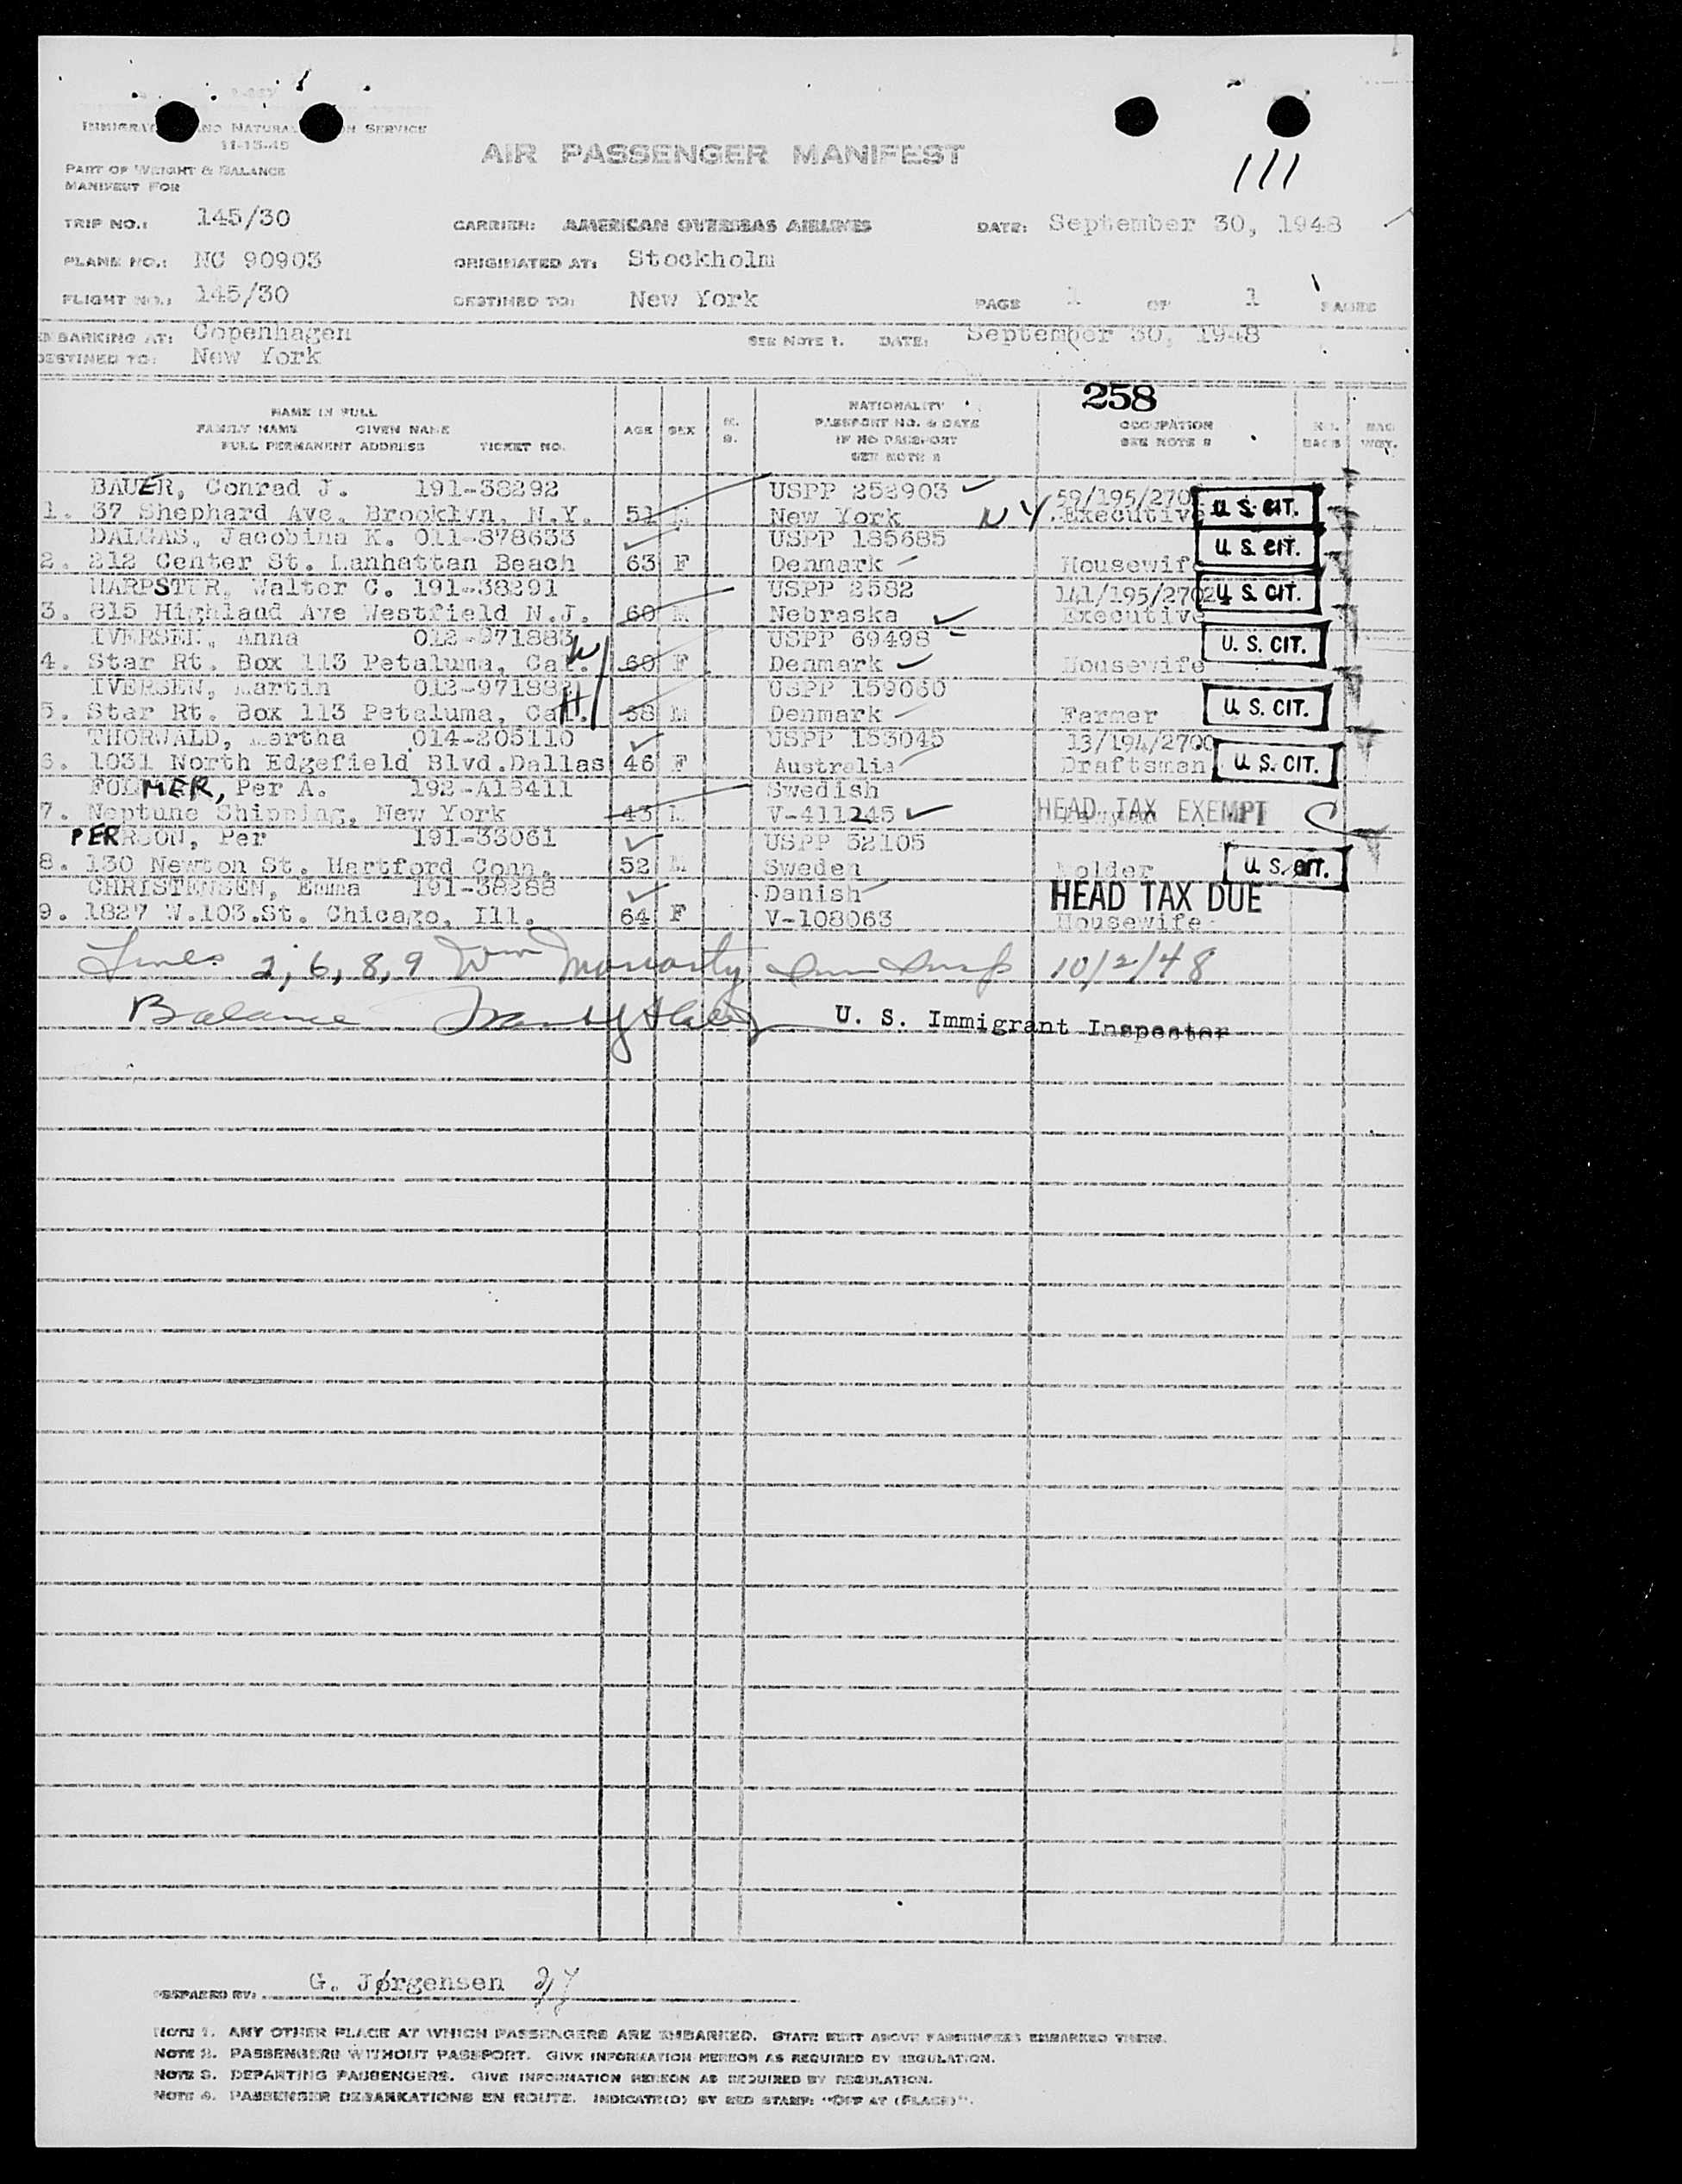 IMMIGRAT ND NATURAL N SERVICE
11-15-45
AIR PASSENGER MANIFEST
PART OF WEIGHT & BALANCE
MANIFEST FOR
111
TRIP NO.: 145/30 CARRIER: AMERICAN OVERSEAS AIRLINES DATE: September 30, 1948
PLANE NO.: NC 90903 ORIGINATED AT: Stockholm
FLIGHT NO.: 145/30 DESTINED TO: New York PAGE 1 OF 1 PAGES
EMBARKING AT: Copenhagen SEE NOTE 1. DATE: September 30, 1948
DESTINED TO: New York
258
NAME IN FULL
FAMILY NAME GIVEN NAME
FULL PERMANENT ADDRESS TICKET NO. AGE SEX M. S. NATIONALITY PASSPORT NO. & DATE IF NO PASSPORT SEE NOTE 2 OCCUPATION SEE NOTE 3 NO. BAGS BAG WGT.
BAUER, Conrad J. 191-38292 USPP 252903 59/195/270 U. S. CIT.
1. 37 Shephard Ave. Brooklyn, N.Y. 51 M New York NY Executive
DALGAS, Jacobina K. 011-878633 USPP 185685 U. S. CIT.
2. 212 Center St. Manhattan Beach 63 F Denmark Housewif
HARPSTER, Walter C. 191-38291 USPP 2582 141/195/2702 U. S. CIT.
3. 815 Highland Ave Westfield N.J. 60 M Nebraska Executive
IVERSEN, Anna 012-971883 USPP 69498 U. S. CIT.
4. Star Rt. Box 113 Petaluma, Cal. W/ 60 F Denmark Housewife
IVERSEN, Martin 012-971882 USPP 159060 U. S. CIT.
5. Star Rt. Box 113 Petaluma, Cal. H/ 68 M Denmark Farmer
THORWALD, Martha 014-205110 USPP 153045 13/194/2700 U. S. CIT.
6. 1031 North Edgefield Blvd.Dallas 46 F Australia Draftsman
FOLMER, Per A. 192-A13411 Swedish
7. Neptune Shipping, New York 43 M V-411245 HEAD TAX EXEMPT
PERSSON, Per 191-33061 USPP 32105
8. 130 Newton St. Hartford Conn. 52 M Sweden Molder U. S. CIT.
CHRISTENSEN, Emma 191-38288 Danish HEAD TAX DUE
9. 1827 W.103.St. Chicago, Ill. 64 F V-108063 Housewife
Lines 2, 6, 8, 9 Wm Moriarty Imm Insp 10/2/48
Balance U. S. Immigrant Inspector
PREPARED BY: G. Jørgensen
NOTE 1. ANY OTHER PLACE AT WHICH PASSENGERS ARE EMBARKED. STATE NEXT ABOVE PASSENGERS EMBARKED THERE.
NOTE 2. PASSENGERS WITHOUT PASSPORT. GIVE INFORMATION HEREON AS REQUIRED BY REGULATION.
NOTE 3. DEPARTING PASSENGERS. GIVE INFORMATION HEREON AS REQUIRED BY REGULATION.
NOTE 4. PASSENGER DEBARKATIONS EN ROUTE. INDICATE(D) BY RED STAMP: "OFF AT (PLACE)".